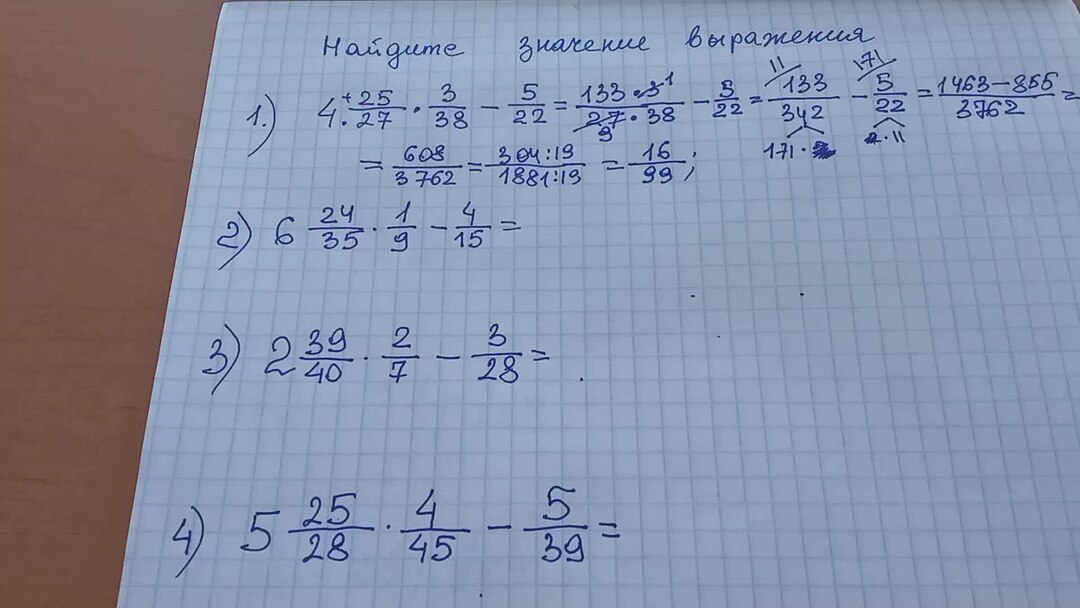 Найдите значение выражения
1.) 4 25/27 · 3/38 − 5/22 = 133 · 3 1/27 9 · 38 − 5/22 = 11/ 133/342 − 171/ 5/22 = 1463 − 855/3762 =
171 · 2 2 · 11
= 608/3762 = 304:19/1881:19 = 16/99;
2) 6 24/35 · 1/9 − 4/15 =
3) 2 39/40 · 2/7 − 3/28 =
4) 5 25/28 · 4/45 − 5/39 =